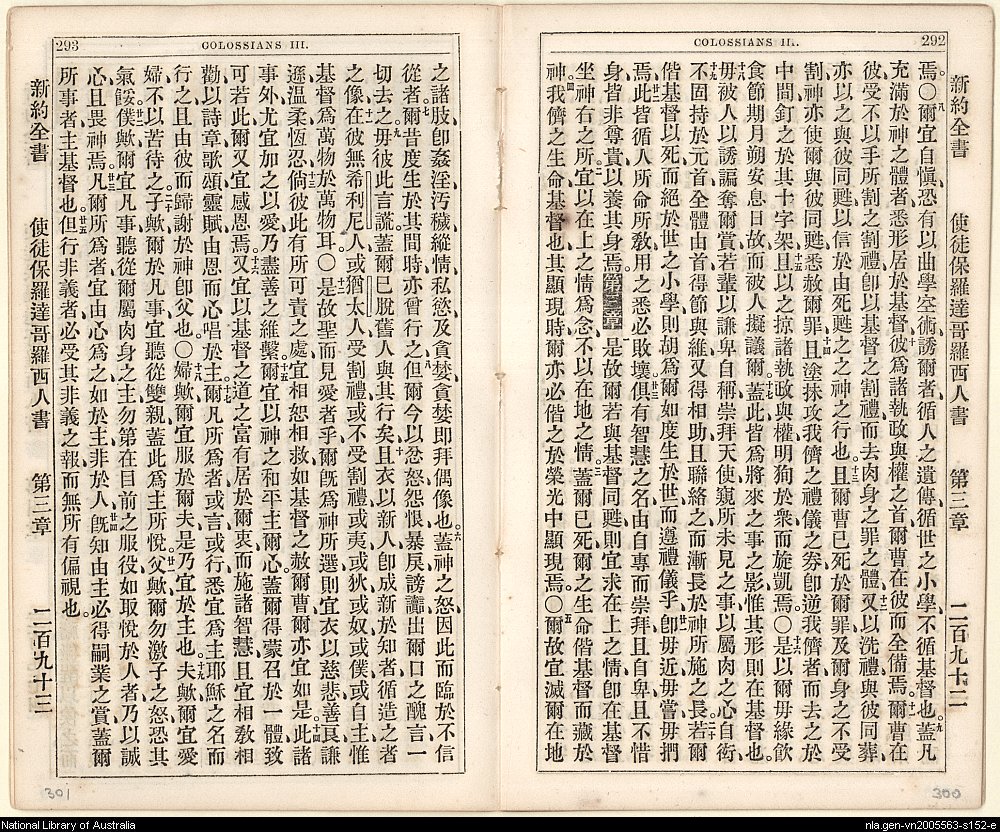 292
COLOSSIANS III.
新約全書 使徒保羅達哥羅西人書 第三章 二百九十二
焉〇爾宜自愼恐有以曲學空術誘爾者循人之遺傳循世之小學不循基督也蓋凡
充滿於神之體者悉形居於基督彼為諸執政與權之首爾曹在彼而全備焉爾曹在
彼受不以手所割之割禮卽以基督之割禮而去肉身之罪之體又以洗禮與彼同葬
亦以之與彼同甦以信於由死甦之之神之行也且爾曹已死於爾罪及爾身之不受
割神亦使爾與彼同甦悉赦爾罪且塗抹攻我儕之禮儀之劵卽逆我儕者而去之於
中間釘之於其十字架且以之掠諸執政與權明狥於衆而旋凱焉〇是以爾毋緣飲
食節期月朔安息日故而被人擬議爾蓋此皆為將來之事之影惟其形則在基督也
毋被人以誘諞奪爾賞若輩以謙卑自稱崇拜天使窺所未見之事以屬肉之心自衒
不固持於元首全體由首得節與維又得相助且聯絡之而漸長於神所施之長若爾
偕基督以死而絕於世之小學則胡為爾如度生於世而遵禮儀乎卽毋近毋嘗毋捫
焉此皆循人所命所敎用之悉必敗壞俱有智慧之名由自專而崇拜且自卑且不惜
身皆非尊貴以養其身焉第三章是故爾若與基督同甦則宜求在上之情卽在基督
坐神右之所宜以在上之情為念不以在地之情蓋爾已死爾之生命偕基督而藏於
神我儕之生命基督也其顯現時爾亦必偕之於榮光中顯現焉〇爾故宜滅爾在地
300
293
COLOSSIANS III.
之諸肢卽姦淫汚穢縱情私慾及貪婪貪婪卽拜偶像也蓋神之怒因此而臨於不信
從者爾昔度生於其間時亦曾行之但爾今以忿怒怨恨暴戾謗讟出爾口之醜言一
切去之毋彼此言謊蓋爾已脫舊人與其行矣且衣以新人卽成新於知者循造之者
之像在彼無希利尼人或猶太人受割禮或不受割禮或夷或狄或奴或僕或自主惟
基督為萬物於萬物耳〇是故聖而見愛者乎爾旣為神所選則宜衣以慈悲善良謙
遜溫柔恆忍倘彼此有所可責之處宜相恕相救如基督之赦爾曹爾亦宜如是此諸
事外尤宜加之以愛乃盡善之維繫爾宜以神之和平主爾心蓋爾得蒙召於一體致
可若此爾又宜感恩焉又宜以基督之道之富有居於爾衷而施諸智慧且宜相敎相
勸以詩章歌頌靈賦由恩而心唱於主爾凡所為者或言或行悉宜為主耶穌之名而
行之且由彼而歸謝於神卽父也〇婦歟爾宜服於爾夫是乃宜於主也夫歟爾宜愛
婦不以苦待之子歟爾於凡事宜聽從雙親蓋此為主所悅父歟爾勿激子之怒恐其
氣餒僕歟爾宜凡事聽從爾屬肉身之主勿第在目前之服役如取悅於人者乃以誠
心且畏神焉凡爾所為者宜由心為之如於主非於人旣知由主必得嗣業之賞蓋爾
所事者主基督也但行非義者必受其非義之報而無所有偏視也
新約全書 使徒保羅達哥羅西人書 第三章 二百九十三
301
National Library of Australia
nla.gen-vn2005563-s152-e